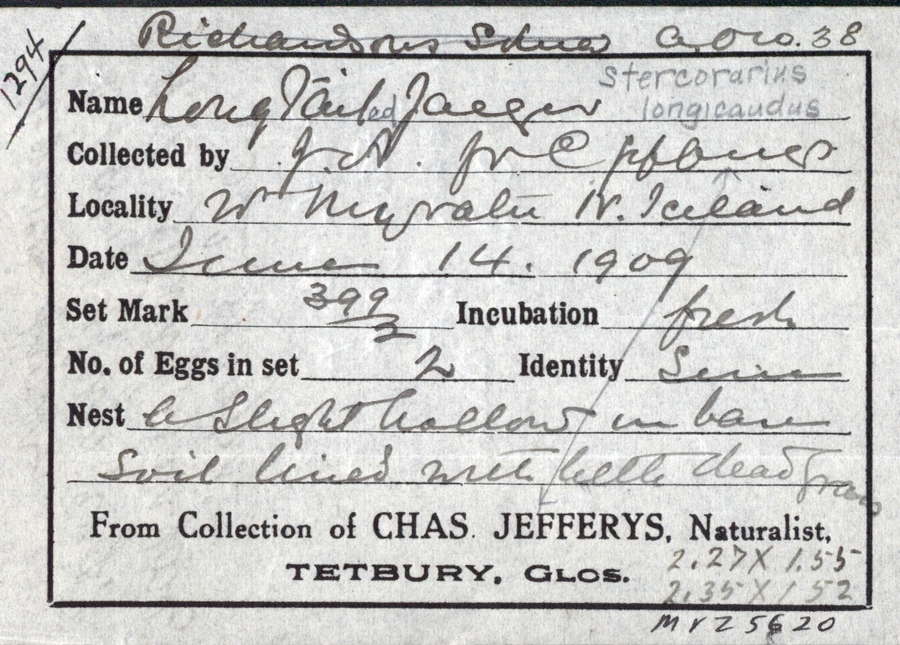 1294
Richardsons Skua A.O.U. 38
Name Long Tailed Jaeger Stercorarius
longicaudus
Collected by J.A. for C
Locality N. Iceland
Date June 14. 1909
Set Mark 399/2 Incubation fresh
No. of Eggs in set 2 Identity Seen
Nest A Slight hollow in bare
Soil lined with little dead grass
From Collection of CHAS. JEFFERYS, Naturalist,
TETBURY, GLOS.
2.27 X 1.55
2.35 X 1.52
MVZ 5620